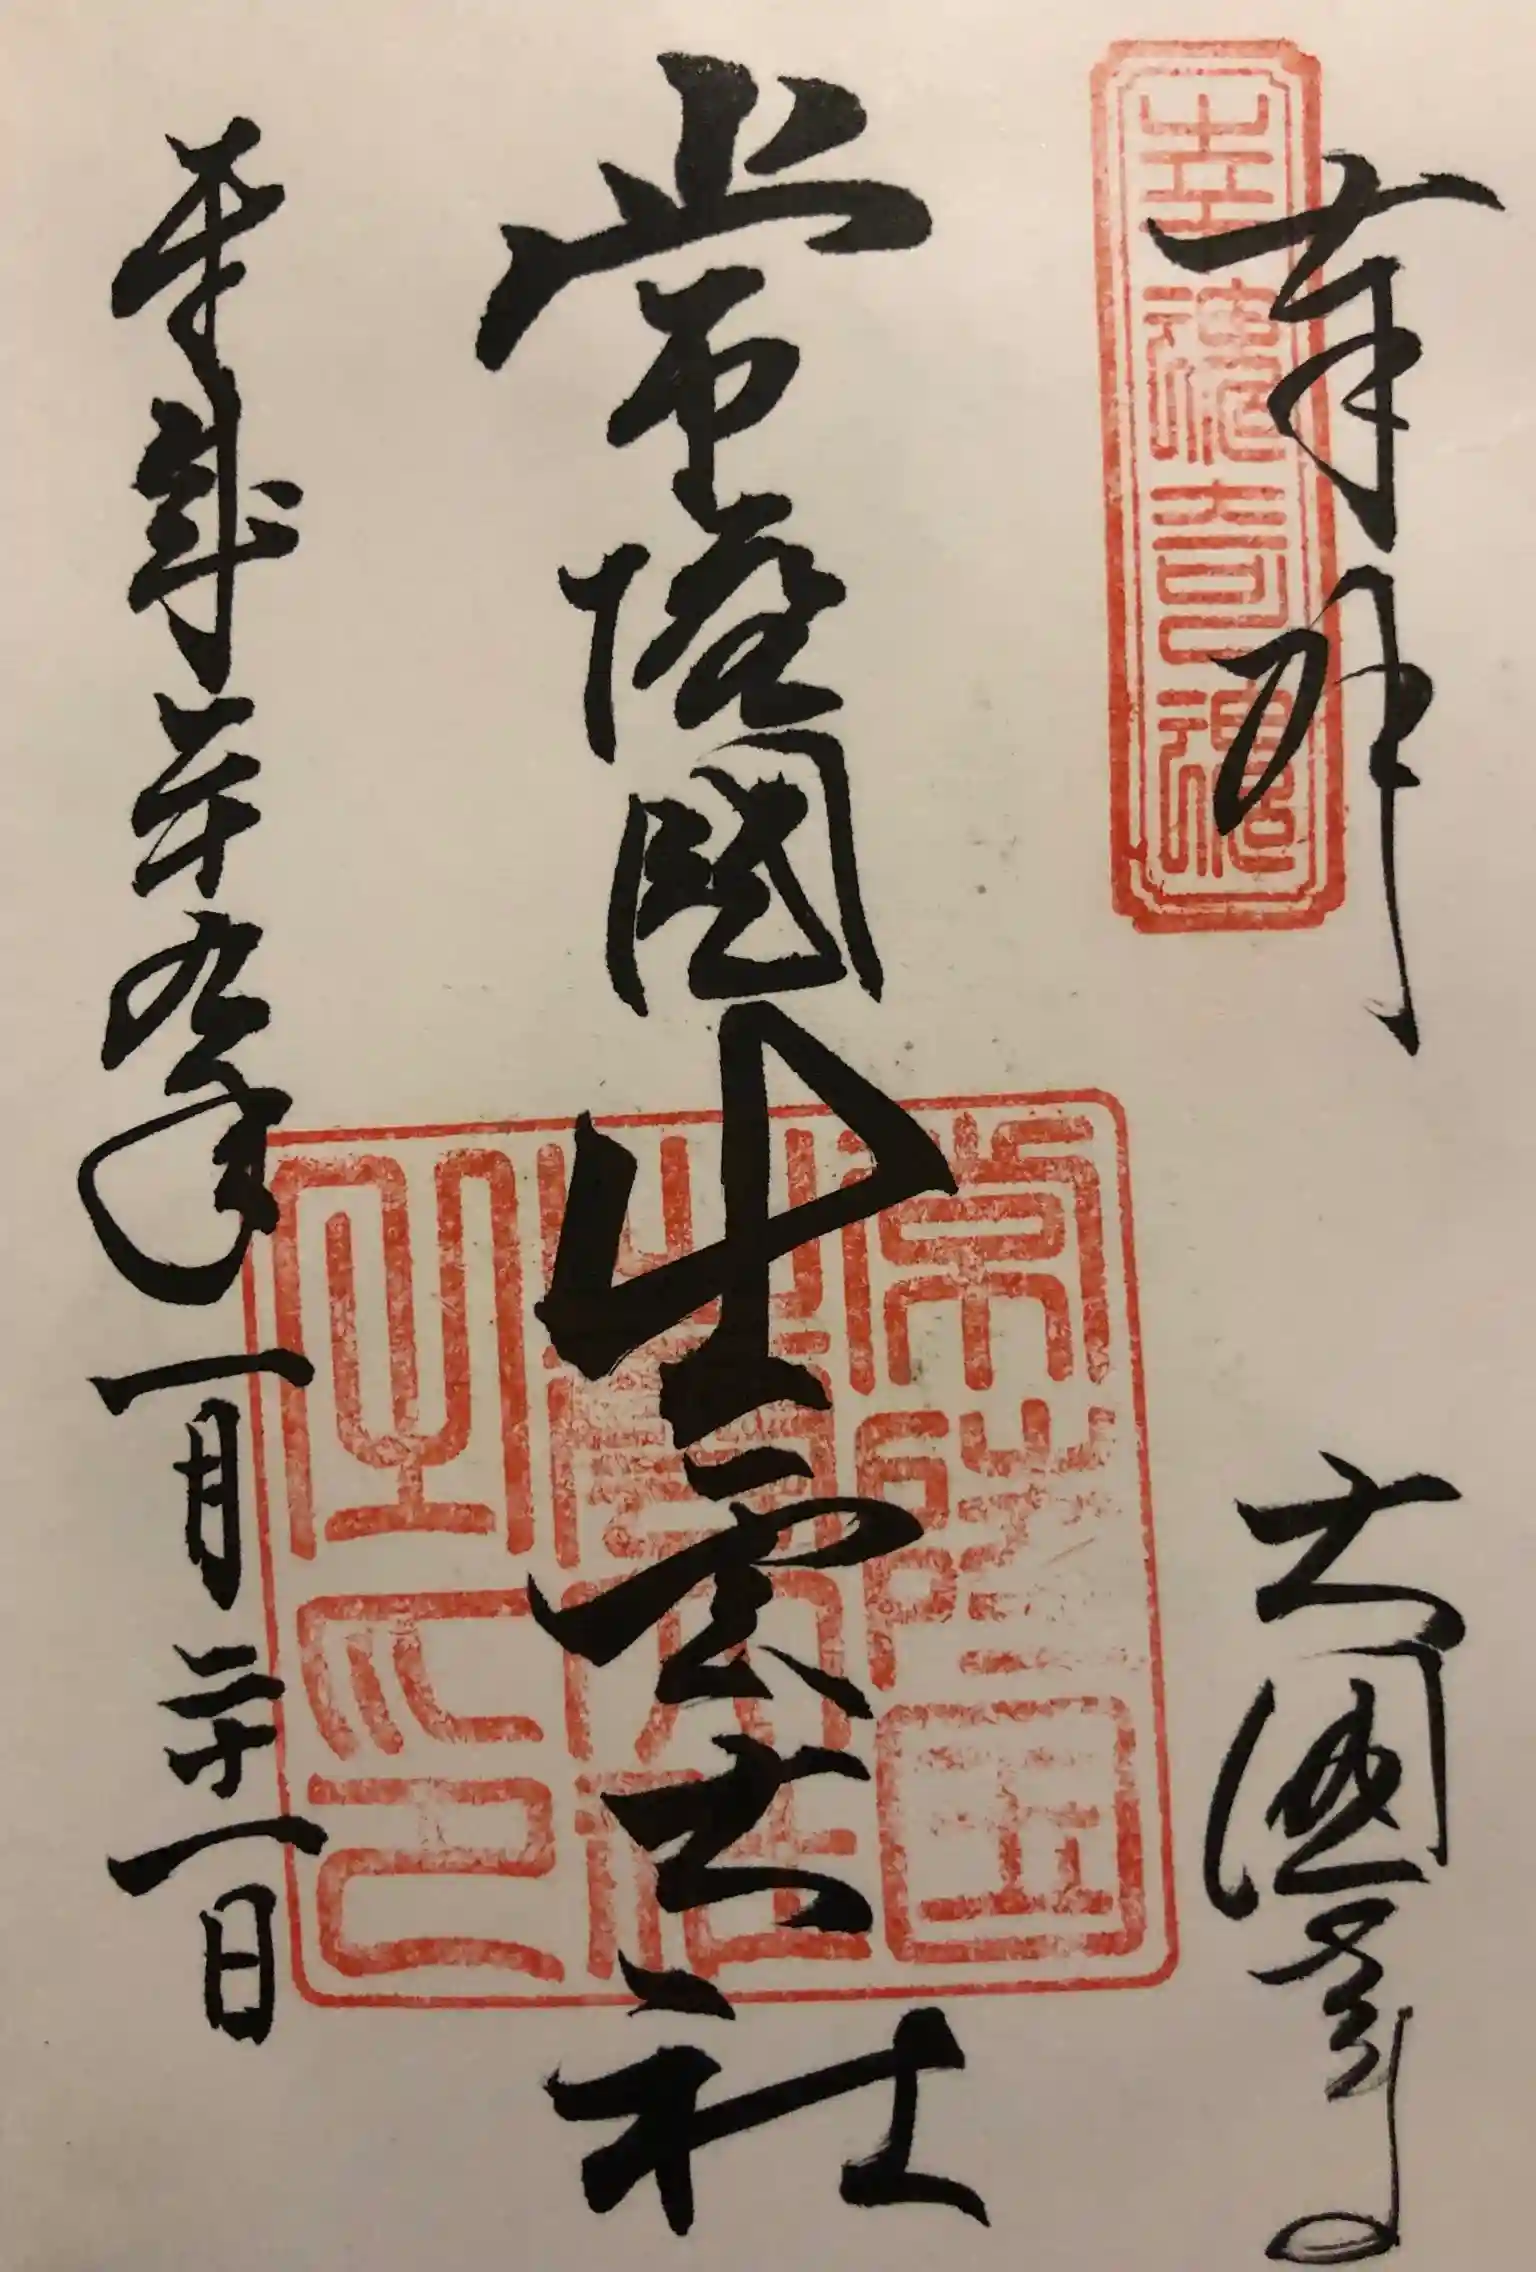 奉拝
幸魂奇魂
大國
常陸國出雲大社
常陸国出雲大社之印
平成廿九年一月二十一日